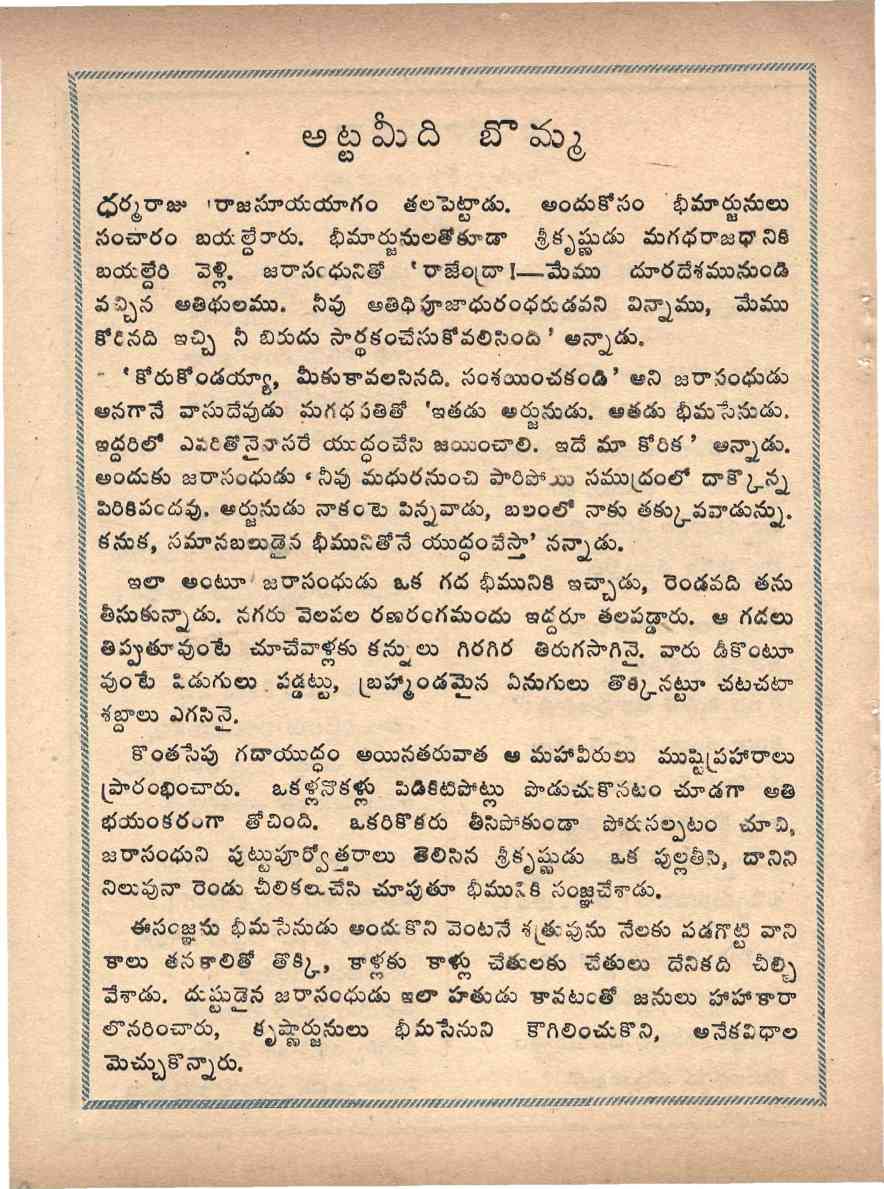 అట్టమీది బొమ్మ
ధర్మరాజు 'రాజసూయయాగం తలపెట్టాడు. అందుకోసం భీమార్జునులు
సంచారం బయల్దేరారు. భీమార్జునులతోకూడా శ్రీకృష్ణుడు మగధరాజధానికి
బయల్దేరి వెళ్లి. జరాసంధునితో 'రాజేంద్రా!—మేము దూరదేశమునుండి
వచ్చిన అతిథులము. నీవు అతిధిపూజాధురంధరుడవని విన్నాము, మేము
కోరినది ఇచ్చి నీ బిరుదు సార్థకంచేసుకోవలిసింది' అన్నాడు.
'కోరుకోండయ్యా, మీకుకావలసినది. సంశయించకండి' అని జరాసంధుడు
అనగానే వాసుదేవుడు మగధపతితో 'ఇతడు అర్జునుడు. ఆతడు భీమసేనుడు.
ఇద్దరిలో ఎవరితోనైనాసరే యుద్ధంచేసి జయించాలి. ఇదే మా కోరిక' అన్నాడు.
అందుకు జరాసంధుడు 'నీవు మధురనుంచి పారిపోయి సముద్రంలో దాక్కొన్న
పిరికిపందవు. అర్జునుడు నాకంటె పిన్నవాడు, బలంలో నాకు తక్కువవాడున్ను.
కనుక, సమానబలుడైన భీమునితోనే యుద్ధంచేస్తా' నన్నాడు.
ఇలా అంటూ జరాసంధుడు ఒక గద భీమునికి ఇచ్చాడు, రెండవది తను
తీసుకున్నాడు. నగరు వెలపల రణరంగమందు ఇద్దరూ తలపడ్డారు. ఆ గడలు
తిప్పుతూవుంటే చూచేవాళ్లకు కన్నులు గిరగిర తిరుగసాగినై. వారు డీకొంటూ
వుంటే పిడుగులు పడ్డట్టు, బ్రహ్మాండమైన ఏనుగులు తొక్కినట్టూ చటచటా
శబ్దాలు ఎగసినై.
కొంతసేపు గదాయుద్ధం అయినతరువాత ఆ మహావీరులు ముష్టిప్రహారాలు
ప్రారంభించారు. ఒకళ్లనొకళ్లు పిడికిటిపోట్లు పొడుచుకొనటం చూడగా అతి
భయంకరంగా తోచింది. ఒకరికొకరు తీసిపోకుండా పోరుసల్పటం చూచి,
జరాసంధుని పుట్టుపూర్వోత్తరాలు తెలిసిన శ్రీకృష్ణుడు ఒక పుల్లతీసి, దానిని
నిలువునా రెండు చీలికలుచేసి చూపుతూ భీమునికి సంజ్ఞచేశాడు.
ఈసంజ్ఞను భీమసేనుడు అందుకొని వెంటనే శత్రువును నేలకు పడగొట్టి వాని
కాలు తనకాలితో తొక్కి, కాళ్లకు కాళ్లు చేతులకు చేతులు దేనికది చీల్చి
వేశాడు. దుష్టుడైన జరాసంధుడు ఇలా హతుడు కావటంతో జనులు హాహాకారా
లొనరించారు, కృష్ణార్జునులు భీమసేనుని కౌగిలించుకొని, అనేకవిధాల
మెచ్చుకొన్నారు.